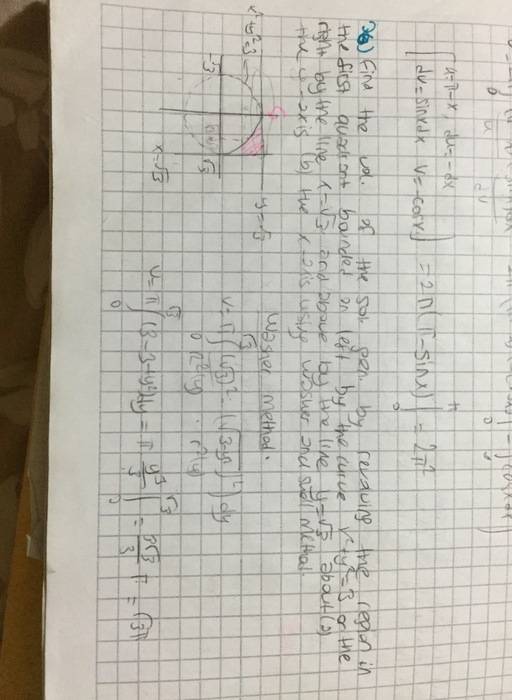 u=π-x, du=-dx
dv=sinxdx v=-cosx
= 2π(π-sinx)|₀^π = 2π²
36) Find the vol. of the sol. gen. by revolving the region in
the first quadrant bounded on left by the curve x²+y²=3 on the
right by the line x=√3 and above by the line y=√3 about (a)
the y-axis b) the x-axis using washer and shell method.
Washer method:
x²+y²=3
y=√3
-√3
√3
x=√3
V=π∫₀^√3 ((√3)²-(√3-y²)²)dy
R²(y) r²(y)
V=π∫₀^√3 (3-3+y²)dy = π y³/3 |₀^√3 = 3√3/3 π = √3π